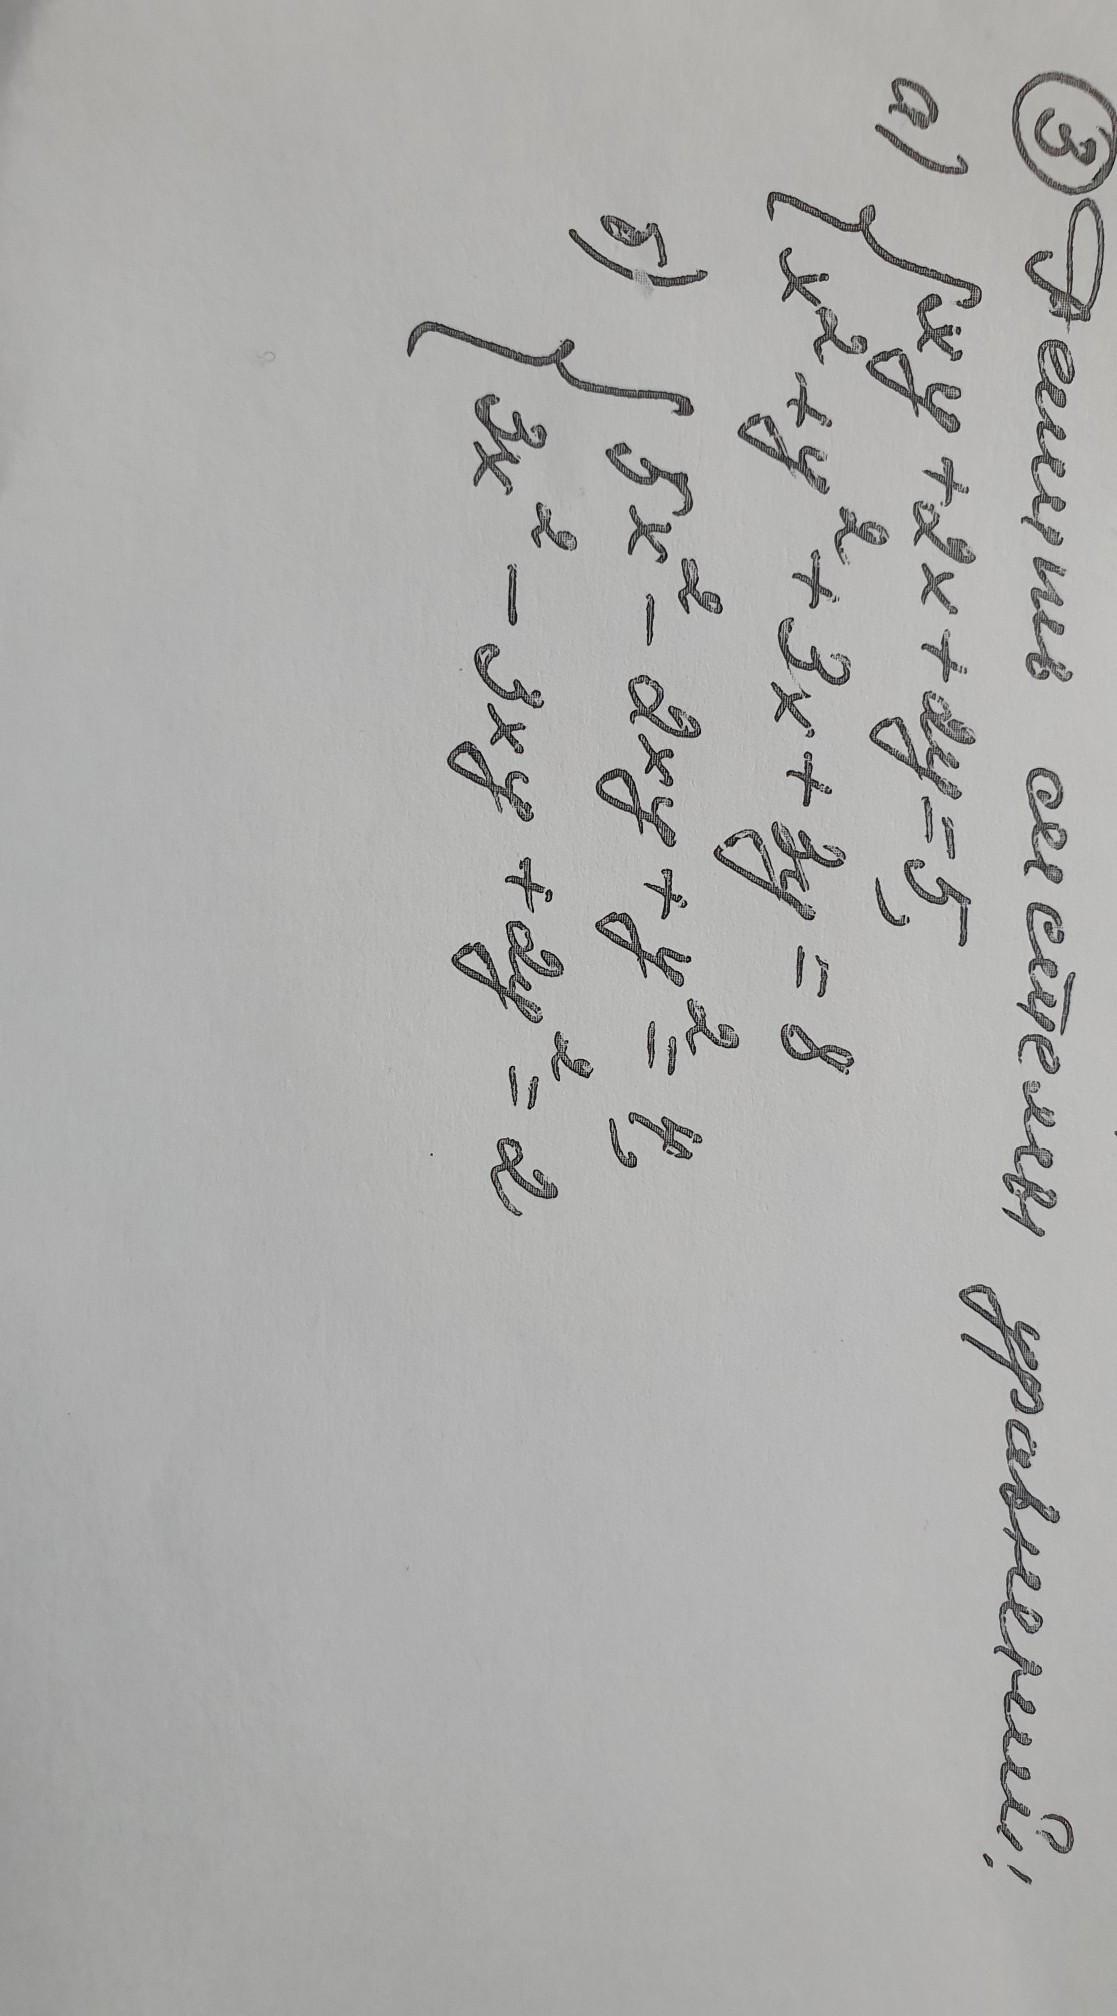 ③ Решить системы уравнений:
а) { xy + 2x + 2y = 5,
x² + y² + 3x + 3y = 8
б) { 5x² - 2xy + y² = 4,
3x² - 3xy + 2y² = 2